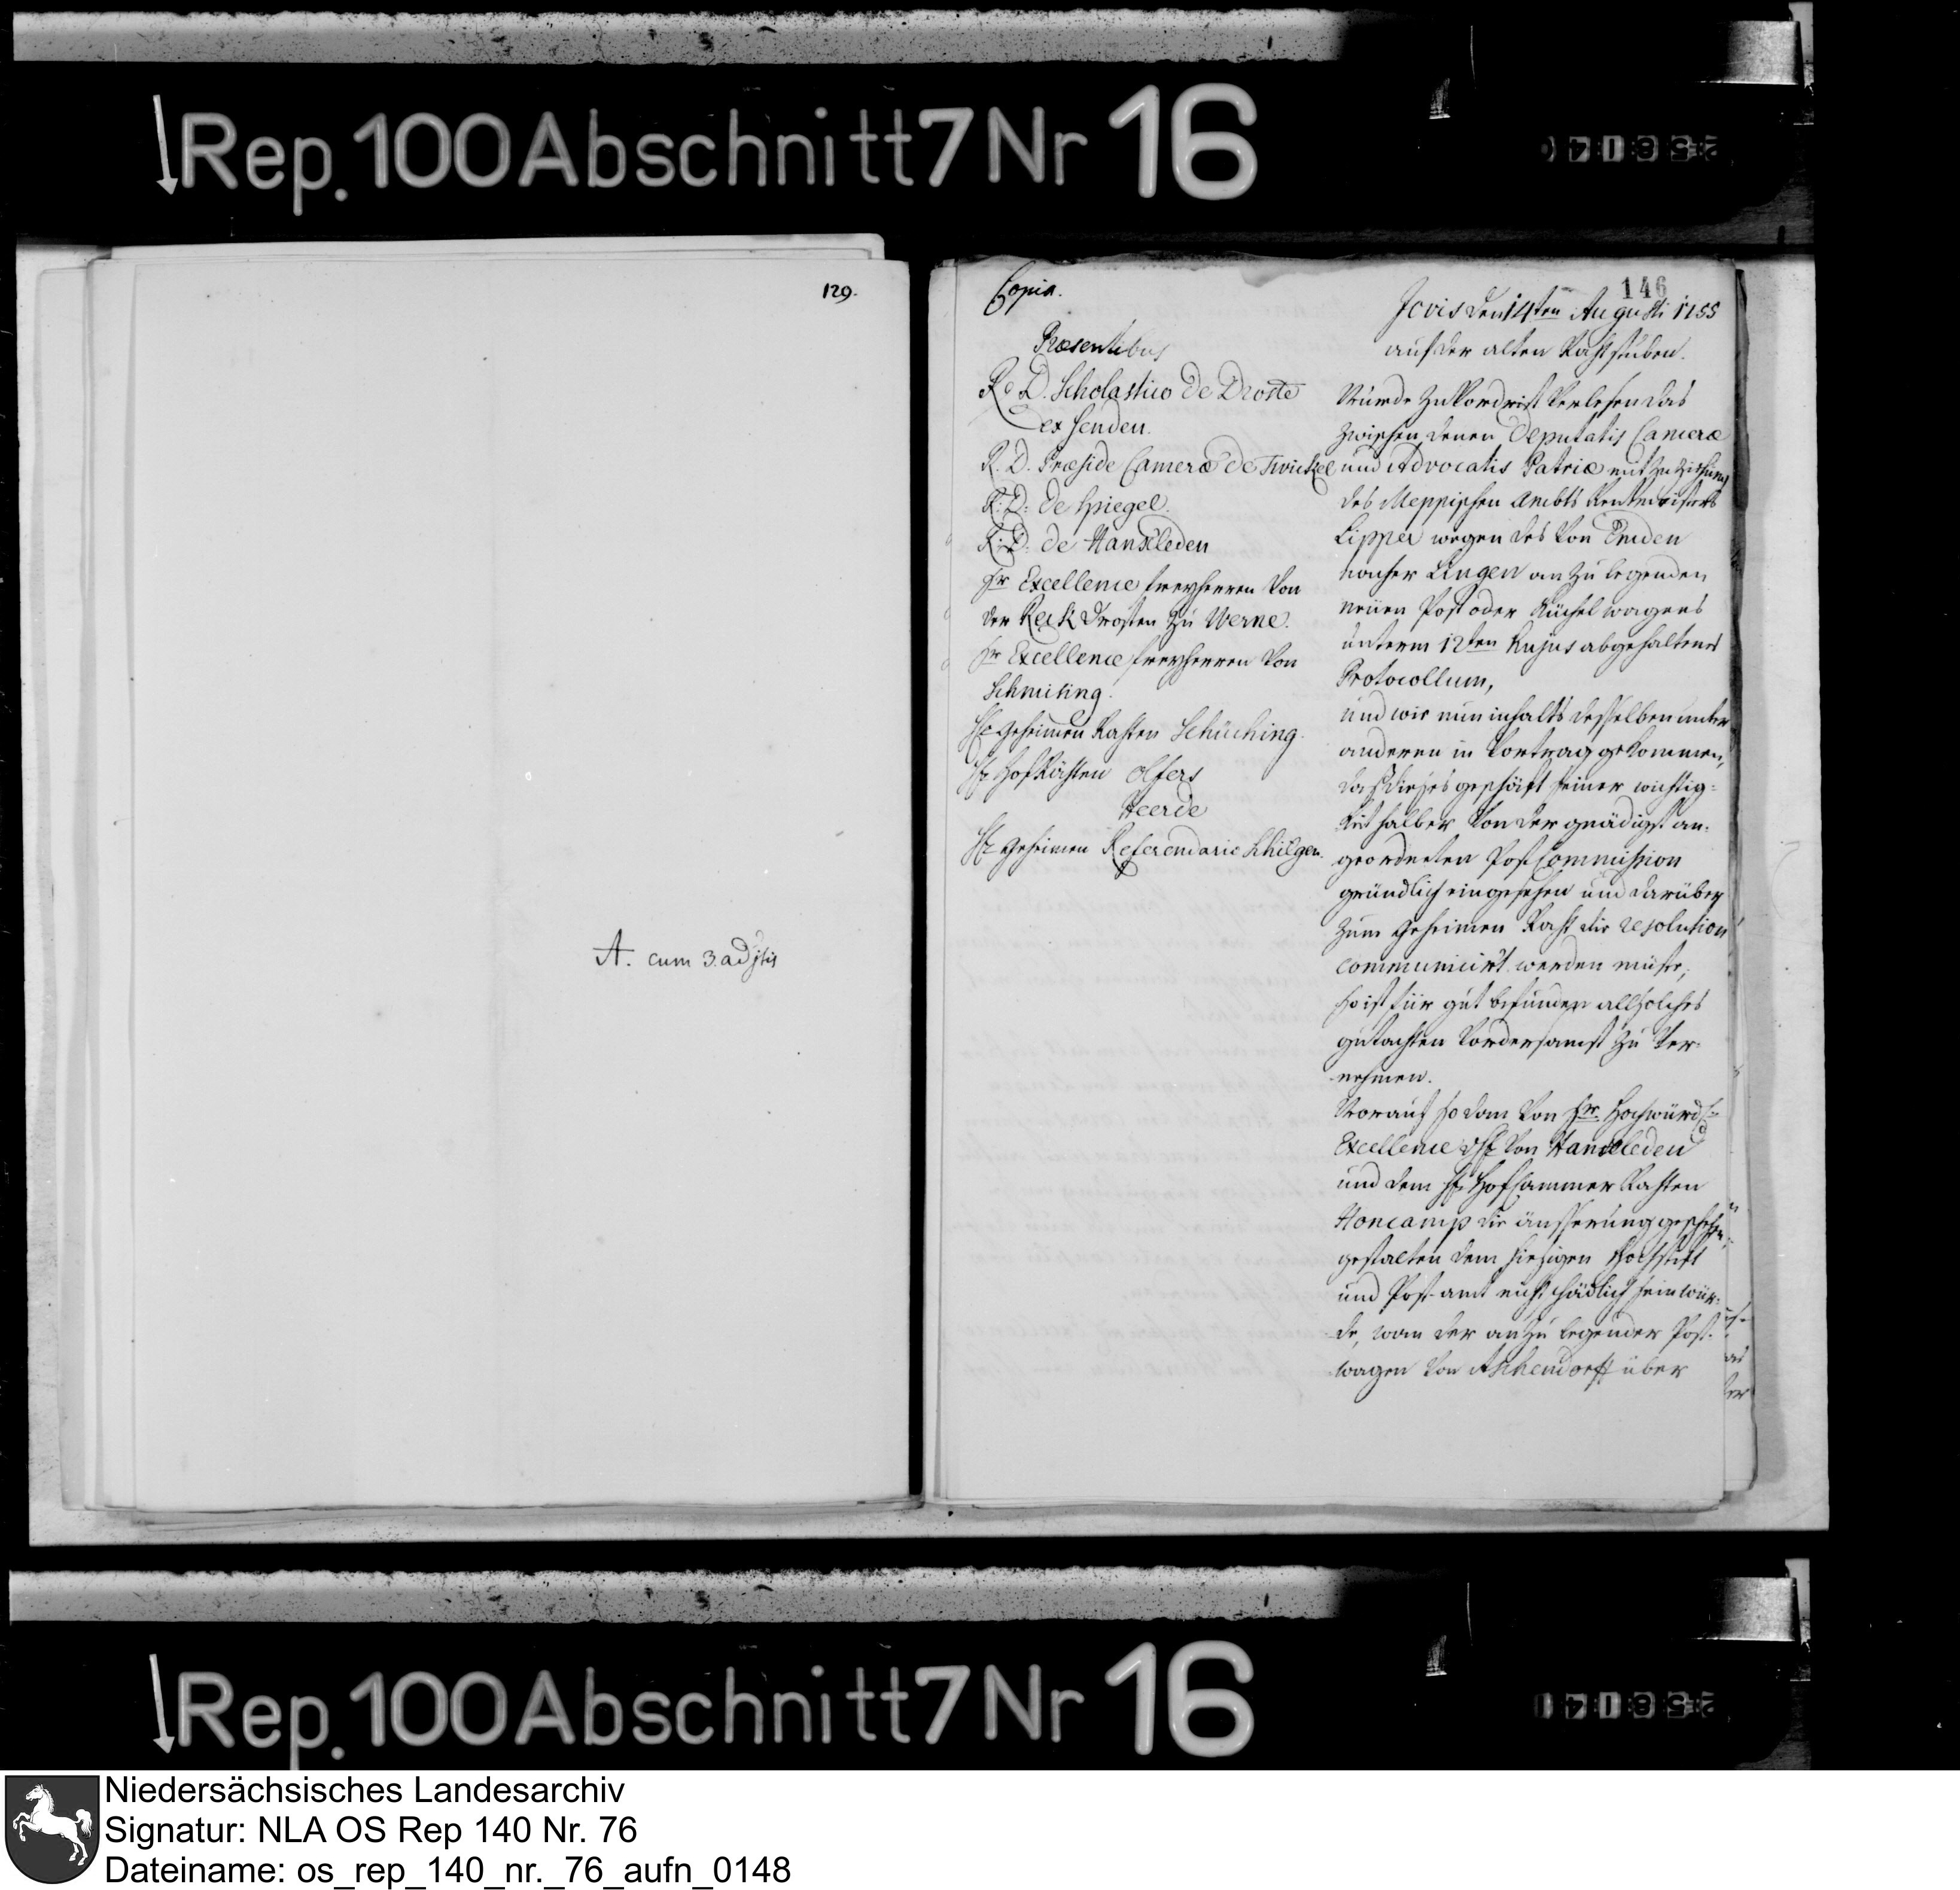 Rep. 100 Abschnitt 7 Nr 16
129.
A. cum 3. adjtis
146
Copia.
Præsentibus
R. D. Scholastico de Droste
ex Senden.
R. D. Præside Cameræ de Twickel
R. D. de Spiegel.
R. D. de Hanxleden
Sr Excellence freyherren von
der Reck Drosten zu Werne.
Sr Excellence freyherren von
Schmising.
H. geheimen Rahten Schücking.
H. HofRähten Olfers
Heerde
H. geheimen Referendario Schilgen.
Jovis den 14ten Augusti 1755
auf der alten Rahtstuben.
Wurde zuvordrist verlesen das
zwischen denen Deputatis Cameræ
und Advocatis Patriæ mit zuziehung
des Meppischen Ambts Rentmeisters
Lipper wegen des von Emden
nacher Lingen anzulegenden
neuen Post oder Küchel wagens
unterm 12ten hujus abgehaltenes
Protocollum,
und wie nun inhalts desselben unter
anderen in vortrag gekommen,
daß dieses geschäft seiner wichtig-
keit halber von der gnädigst an-
geordneten Post Commission
gründlich eingesehen und darüber
zum geheimen Raht die resolution
communicirt werden müste,
so ist für gut befunden allsolches
gutachten vordersamst zu ver-
nehmen.
Worauf so dan von Sr. Hochwürd.
Excellence H. von Hanxleden
und dem H. HofCammer Rahten
Honcamp die äusserung geschehen,
gestalten dem hiesigen Hochstift
und Post-amt nicht schädlich sein wür-
de, wan der anzulegender Post-
wagen von Aschendorff über
Rep. 100 Abschnitt 7 Nr 16
Niedersächsisches Landesarchiv
Signatur: NLA OS Rep 140 Nr. 76
Dateiname: os_rep_140_nr._76_aufn_0148